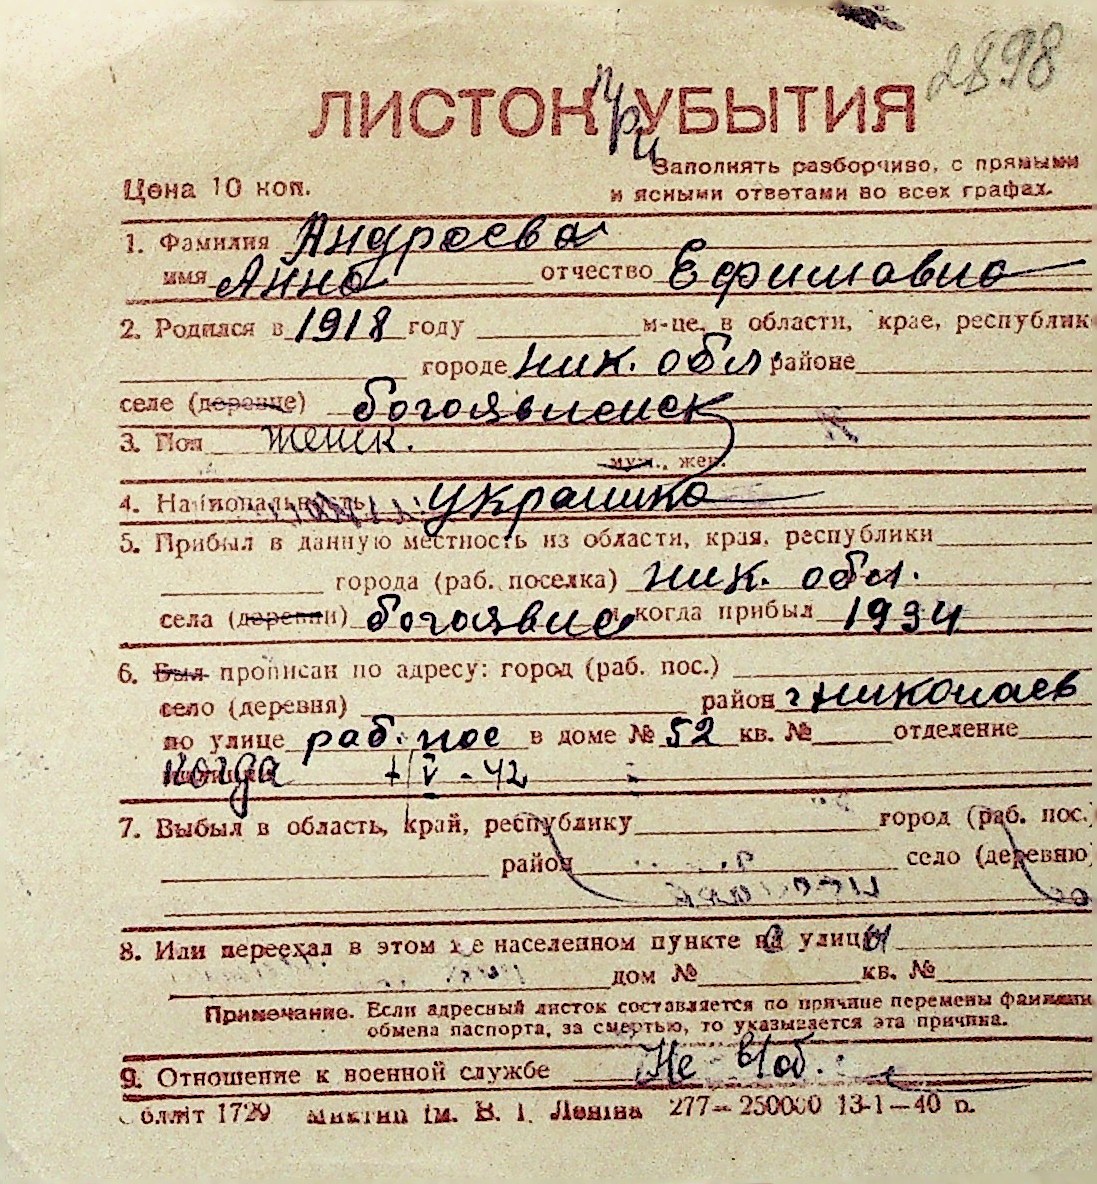 2898
ЛИСТОК при УБЫТИЯ
Заполнять разборчиво, с прямыми
Цена 10 коп.
и ясными ответами во всех графах.
1. Фамилия Андреева
имя Анна отчество Ефимовна
2. Родился в 1918 году м-це, в области, крае, республик
городе ник. обл. районе
селе (деревне) богоявленск
3. Пол женск.
муж., жен.
4. Национальность украинка
5. Прибыл в данную местность из области, края, республики
города (раб. поселка) ник. обл.
села (деревни) богоявле и когда прибыл 1934
6. Был прописан по адресу: город (раб. пос.)
село (деревня) район г николаев
по улице раб. пос в доме № 52 кв. № отделение
Когда 1/V - 42
7. Выбыл в область, край, республику город (раб. пос.)
район село (деревню)
8. Или переехал в этом же населенном пункте на улицы
дом № кв. №
Примечание. Если адресный листок составляется по причине перемены фамилии
обмена паспорта, за смертью, то указывается эта причина.
9. Отношение к военной службе Не в/об.
Обллiт 1729 iм. В. I. Ленiна 277—250000 13-1—40 р.